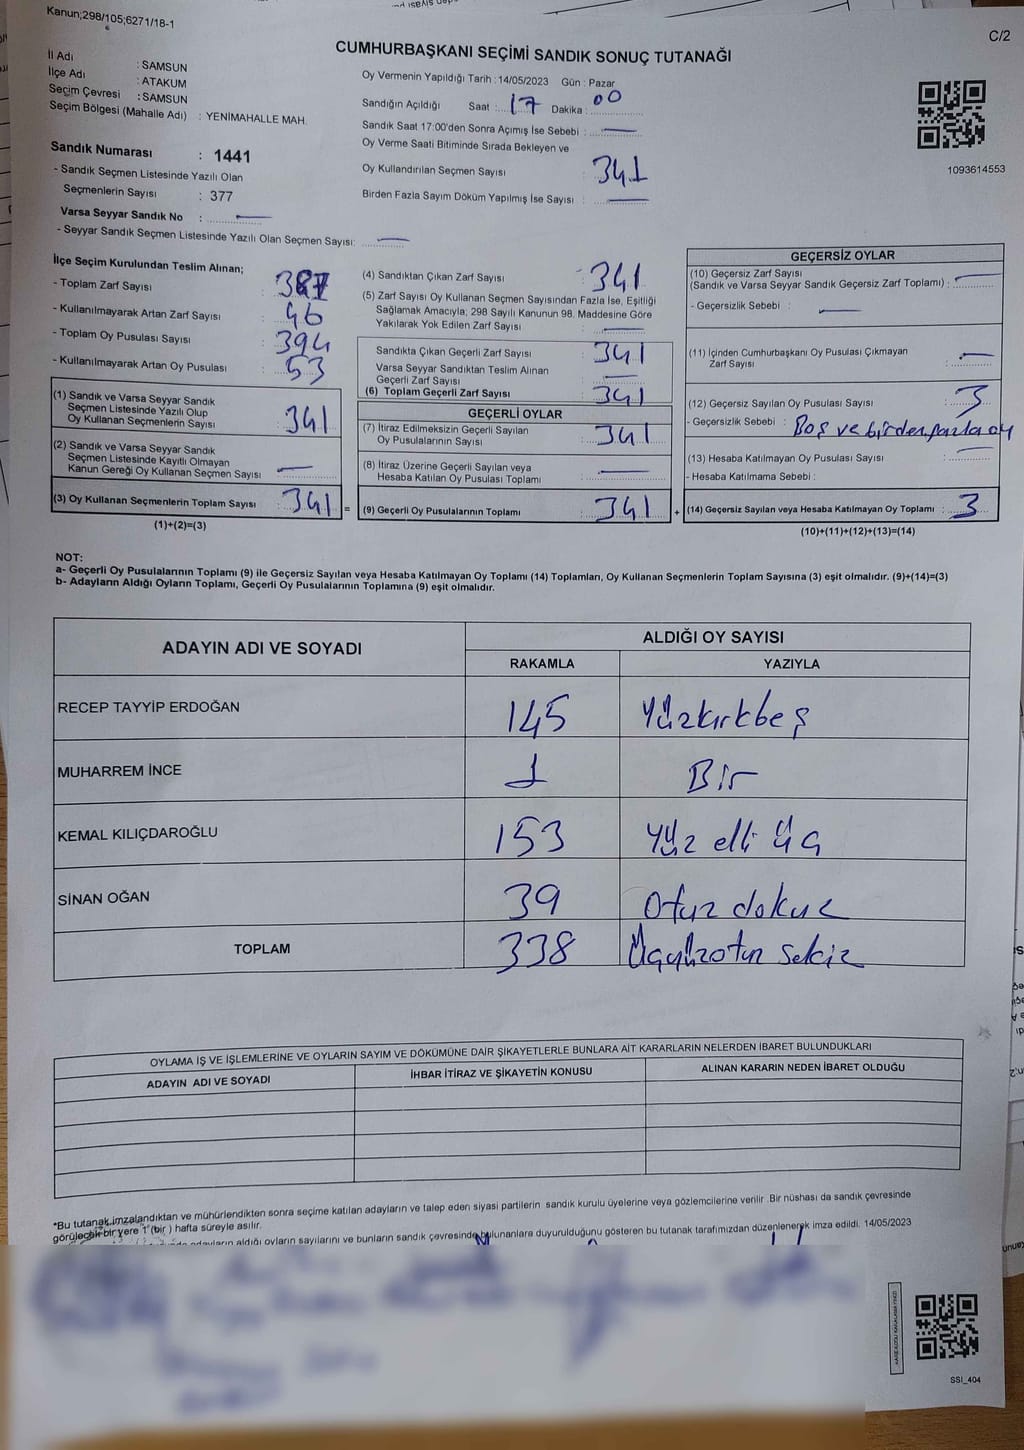 Kanun;298/105;6271/18-1
C/2
CUMHURBAŞKANI SEÇİMİ SANDIK SONUÇ TUTANAĞI
İl Adı : SAMSUN
İlçe Adı : ATAKUM
Seçim Çevresi : SAMSUN
Seçim Bölgesi (Mahalle Adı) : YENİMAHALLE MAH.
Sandık Numarası : 1441
- Sandık Seçmen Listesinde Yazılı Olan
Seçmenlerin Sayısı : 377
Varsa Seyyar Sandık No :
- Seyyar Sandık Seçmen Listesinde Yazılı Olan Seçmen Sayısı:
Oy Vermenin Yapıldığı Tarih : 14/05/2023 Gün : Pazar
Sandığın Açıldığı Saat : 17 Dakika : 00
Sandık Saat 17:00'den Sonra Açımış İse Sebebi :
Oy Verme Saati Bitiminde Sırada Bekleyen ve
Oy Kullandırılan Seçmen Sayısı : 341
Birden Fazla Sayım Döküm Yapılmış İse Sayısı :
1093614553
İlçe Seçim Kurulundan Teslim Alınan;
- Toplam Zarf Sayısı : 387
- Kullanılmayarak Artan Zarf Sayısı : 46
- Toplam Oy Pusulası Sayısı : 394
- Kullanılmayarak Artan Oy Pusulası : 53
(1) Sandık ve Varsa Seyyar Sandık
Seçmen Listesinde Yazılı Olup
Oy Kullanan Seçmenlerin Sayısı : 341
(2) Sandık ve Varsa Seyyar Sandık
Seçmen Listesinde Kayıtlı Olmayan
Kanun Gereği Oy Kullanan Seçmen Sayısı :
(3) Oy Kullanan Seçmenlerin Toplam Sayısı : 341 =
(1)+(2)=(3)
(4) Sandıktan Çıkan Zarf Sayısı : 341
(5) Zarf Sayısı Oy Kullanan Seçmen Sayısından Fazla İse, Eşitliği
Sağlamak Amacıyla; 298 Sayılı Kanunun 98. Maddesine Göre
Yakılarak Yok Edilen Zarf Sayısı :
Sandıkta Çıkan Geçerli Zarf Sayısı : 341
Varsa Seyyar Sandıktan Teslim Alınan
Geçerli Zarf Sayısı :
(6) Toplam Geçerli Zarf Sayısı : 341
GEÇERLİ OYLAR
(7) İtiraz Edilmeksizin Geçerli Sayılan
Oy Pusulalarının Sayısı : 341
(8) İtiraz Üzerine Geçerli Sayılan veya
Hesaba Katılan Oy Pusulası Toplamı :
(9) Geçerli Oy Pusulalarının Toplamı : 341 +
GEÇERSİZ OYLAR
(10) Geçersiz Zarf Sayısı
(Sandık ve Varsa Seyyar Sandık Geçersiz Zarf Toplamı) :
- Geçersizlik Sebebi :
(11) İçinden Cumhurbaşkanı Oy Pusulası Çıkmayan
Zarf Sayısı :
(12) Geçersiz Sayılan Oy Pusulası Sayısı : 3
- Geçersizlik Sebebi : Boş ve birden fazla oy
(13) Hesaba Katılmayan Oy Pusulası Sayısı :
- Hesaba Katılmama Sebebi :
(14) Geçersiz Sayılan veya Hesaba Katılmayan Oy Toplamı : 3
(10)+(11)+(12)+(13)=(14)
NOT:
a- Geçerli Oy Pusulalarının Toplamı (9) ile Geçersiz Sayılan veya Hesaba Katılmayan Oy Toplamı (14) Toplamları, Oy Kullanan Seçmenlerin Toplam Sayısına (3) eşit olmalıdır. (9)+(14)=(3)
b- Adayların Aldığı Oyların Toplamı, Geçerli Oy Pusulalarının Toplamına (9) eşit olmalıdır.
ADAYIN ADI VE SOYADI
ALDIĞI OY SAYISI
RAKAMLA YAZIYLA
RECEP TAYYİP ERDOĞAN 145 Yüzkırkbeş
MUHARREM İNCE 1 Bir
KEMAL KILIÇDAROĞLU 153 Yüz elli üç
SİNAN OĞAN 39 Otuz dokuz
TOPLAM 338 Üçyüzotuz sekiz
OYLAMA İŞ VE İŞLEMLERİNE VE OYLARIN SAYIM VE DÖKÜMÜNE DAİR ŞİKAYETLERLE BUNLARA AİT KARARLARIN NELERDEN İBARET BULUNDUKLARI
ADAYIN ADI VE SOYADI İHBAR İTİRAZ VE ŞİKAYETİN KONUSU ALINAN KARARIN NEDEN İBARET OLDUĞU
*Bu tutanak imzalandıktan ve mühürlendikten sonra seçime katılan adayların ve talep eden siyasi partilerin sandık kurulu üyelerine veya gözlemcilerine verilir .Bir nüshası da sandık çevresinde
görülecek bir yere 1 (bir ) hafta süreyle asılır.
adayların aldığı oyların sayılarını ve bunların sandık çevresinde bulunanlara duyurulduğunu gösteren bu tutanak tarafımızdan düzenlenerek imza edildi. 14/05/2023
SSI_404